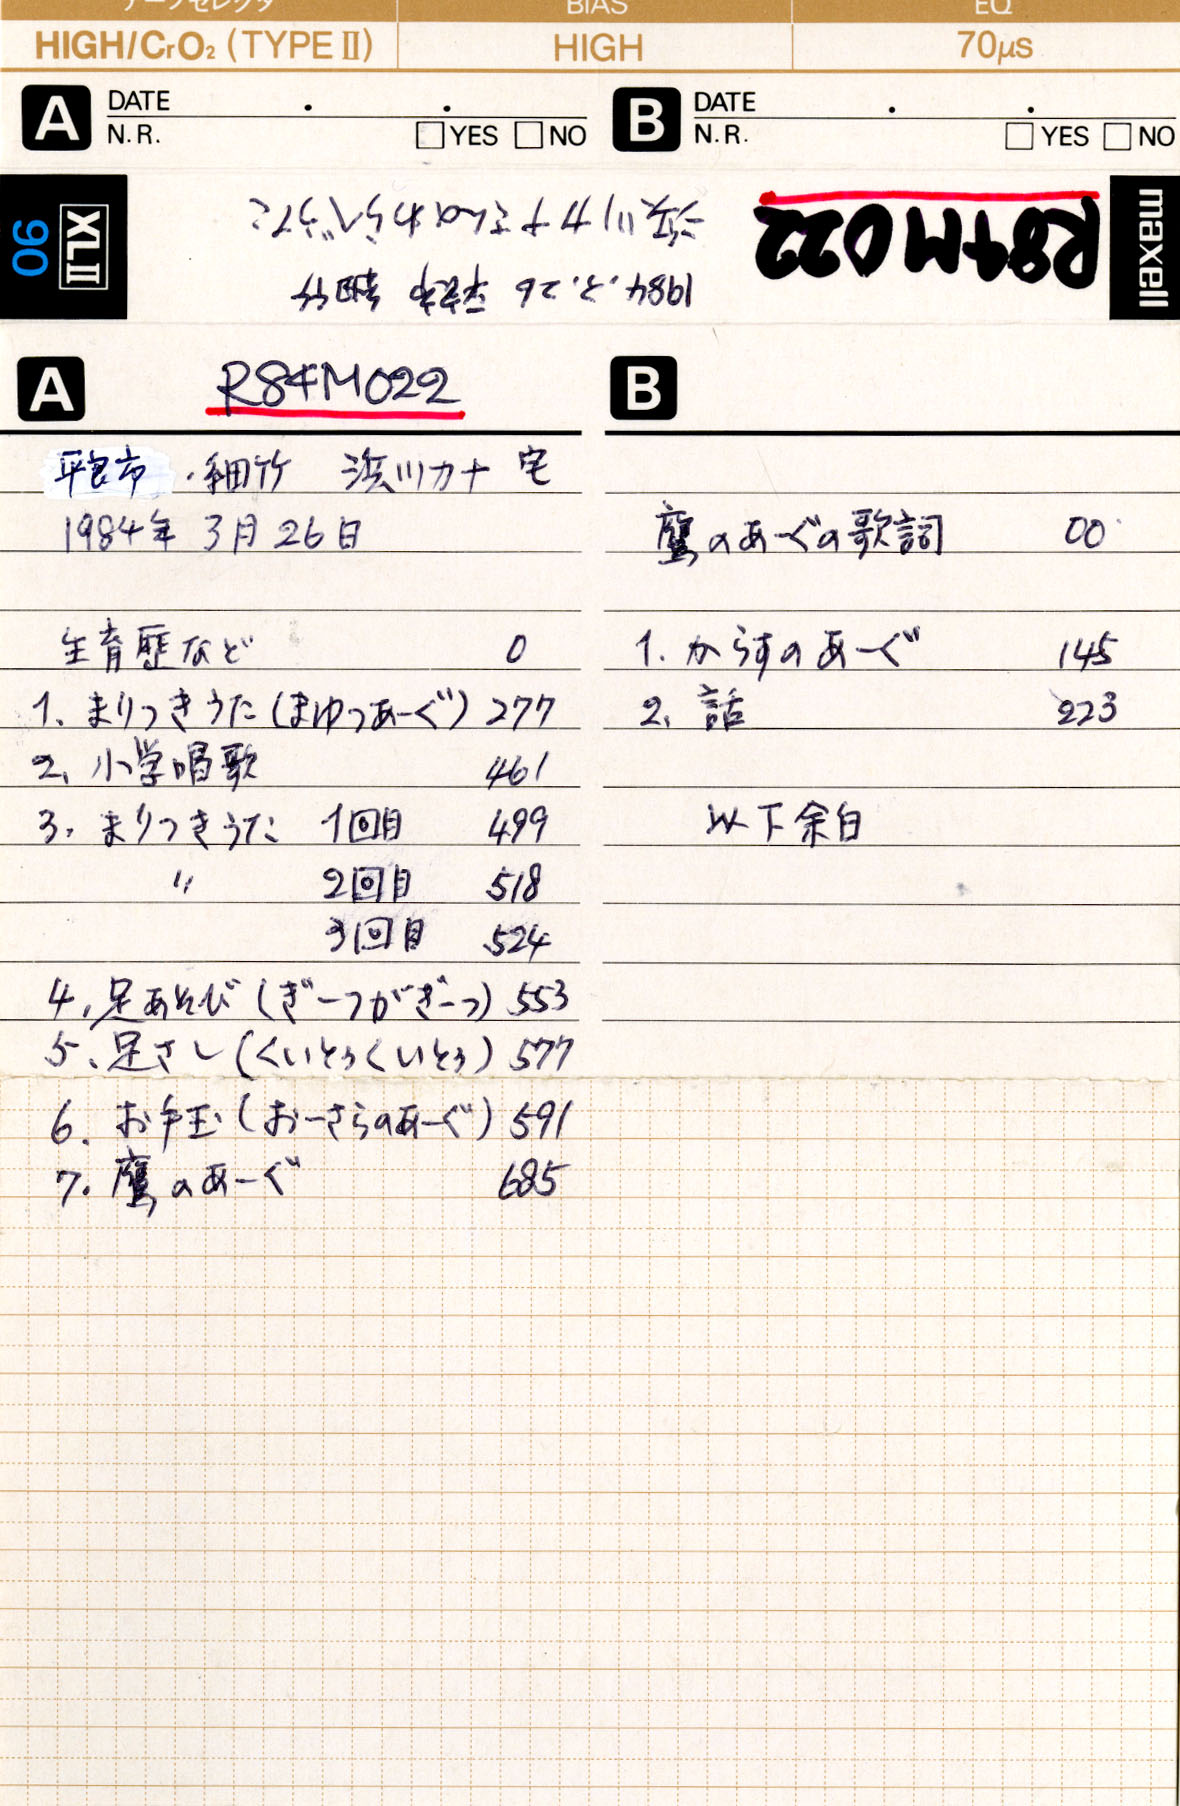 テープセレクタ BIAS EQ
HIGH/CrO₂ (TYPE II) HIGH 70μs
A DATE . . B DATE . .
N.R. □YES □NO N.R. □YES □NO
maxell R84M022 1984.3.26 平良市 細竹 XLII 90
浜川カナさんのわらべうた
A R84M022 B
平良市・細竹 浜川カナ宅
1984年3月26日
生育歴など 0
1. まりつきうた(まゆつあーぐ) 277
2. 小学唱歌 461
3. まりつきうた 1回目 499
〃 2回目 518
3回目 524
4. 足あそび(ぎーつがぎーつ) 553
5. 足さし(くいとぅくいとぅ) 577
6. お手玉(おーさらのあーぐ) 591
7. 鷹のあーぐ 685
鷹のあーぐの歌詞 00
1. からすのあーぐ 145
2. 話 223
以下余白